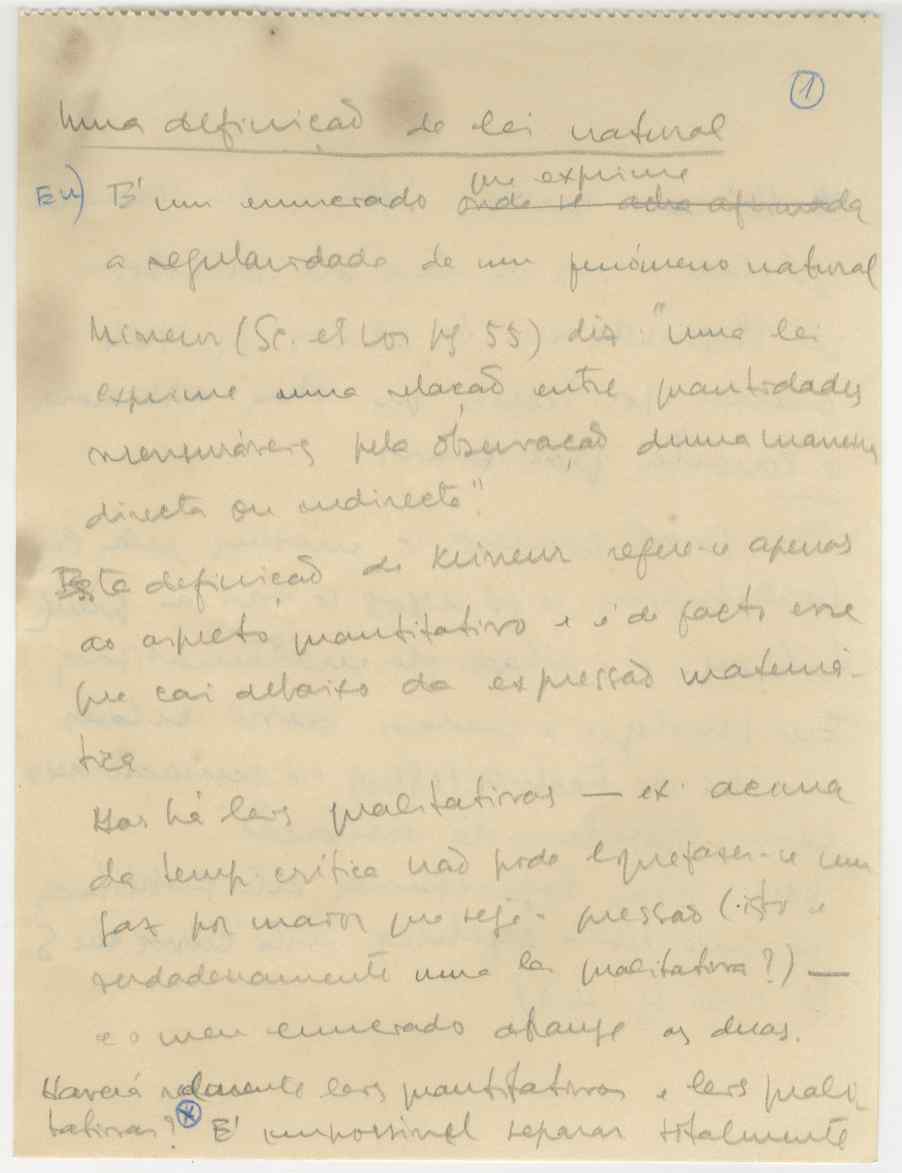 1
Uma definição de lei natural
que exprime
Eu) É um enunciado onde se acha afirmada
a regularidade de um fenómeno natural
Mineur (Sc. et Loi pg 55) diz: "uma lei
exprime uma relação entre quantidades
mensuráveis pela observação duma maneira
directa ou indirecta"
Esta definição de Mineur refere-se apenas
ao aspecto quantitativo e é de facto esse
que cai debaixo da expressão matemá-
tica
Mas há leis qualitativas — ex. acima
da temp. crítica não pode liquefazer-se um
gaz por maior que seja a pressão (isto é
verdadeiramente uma lei qualitativa?) —
e o meu enunciado abrange as duas.
Haverá realmente leis quantitativas e leis quali
tativas? É impossível separar totalmente